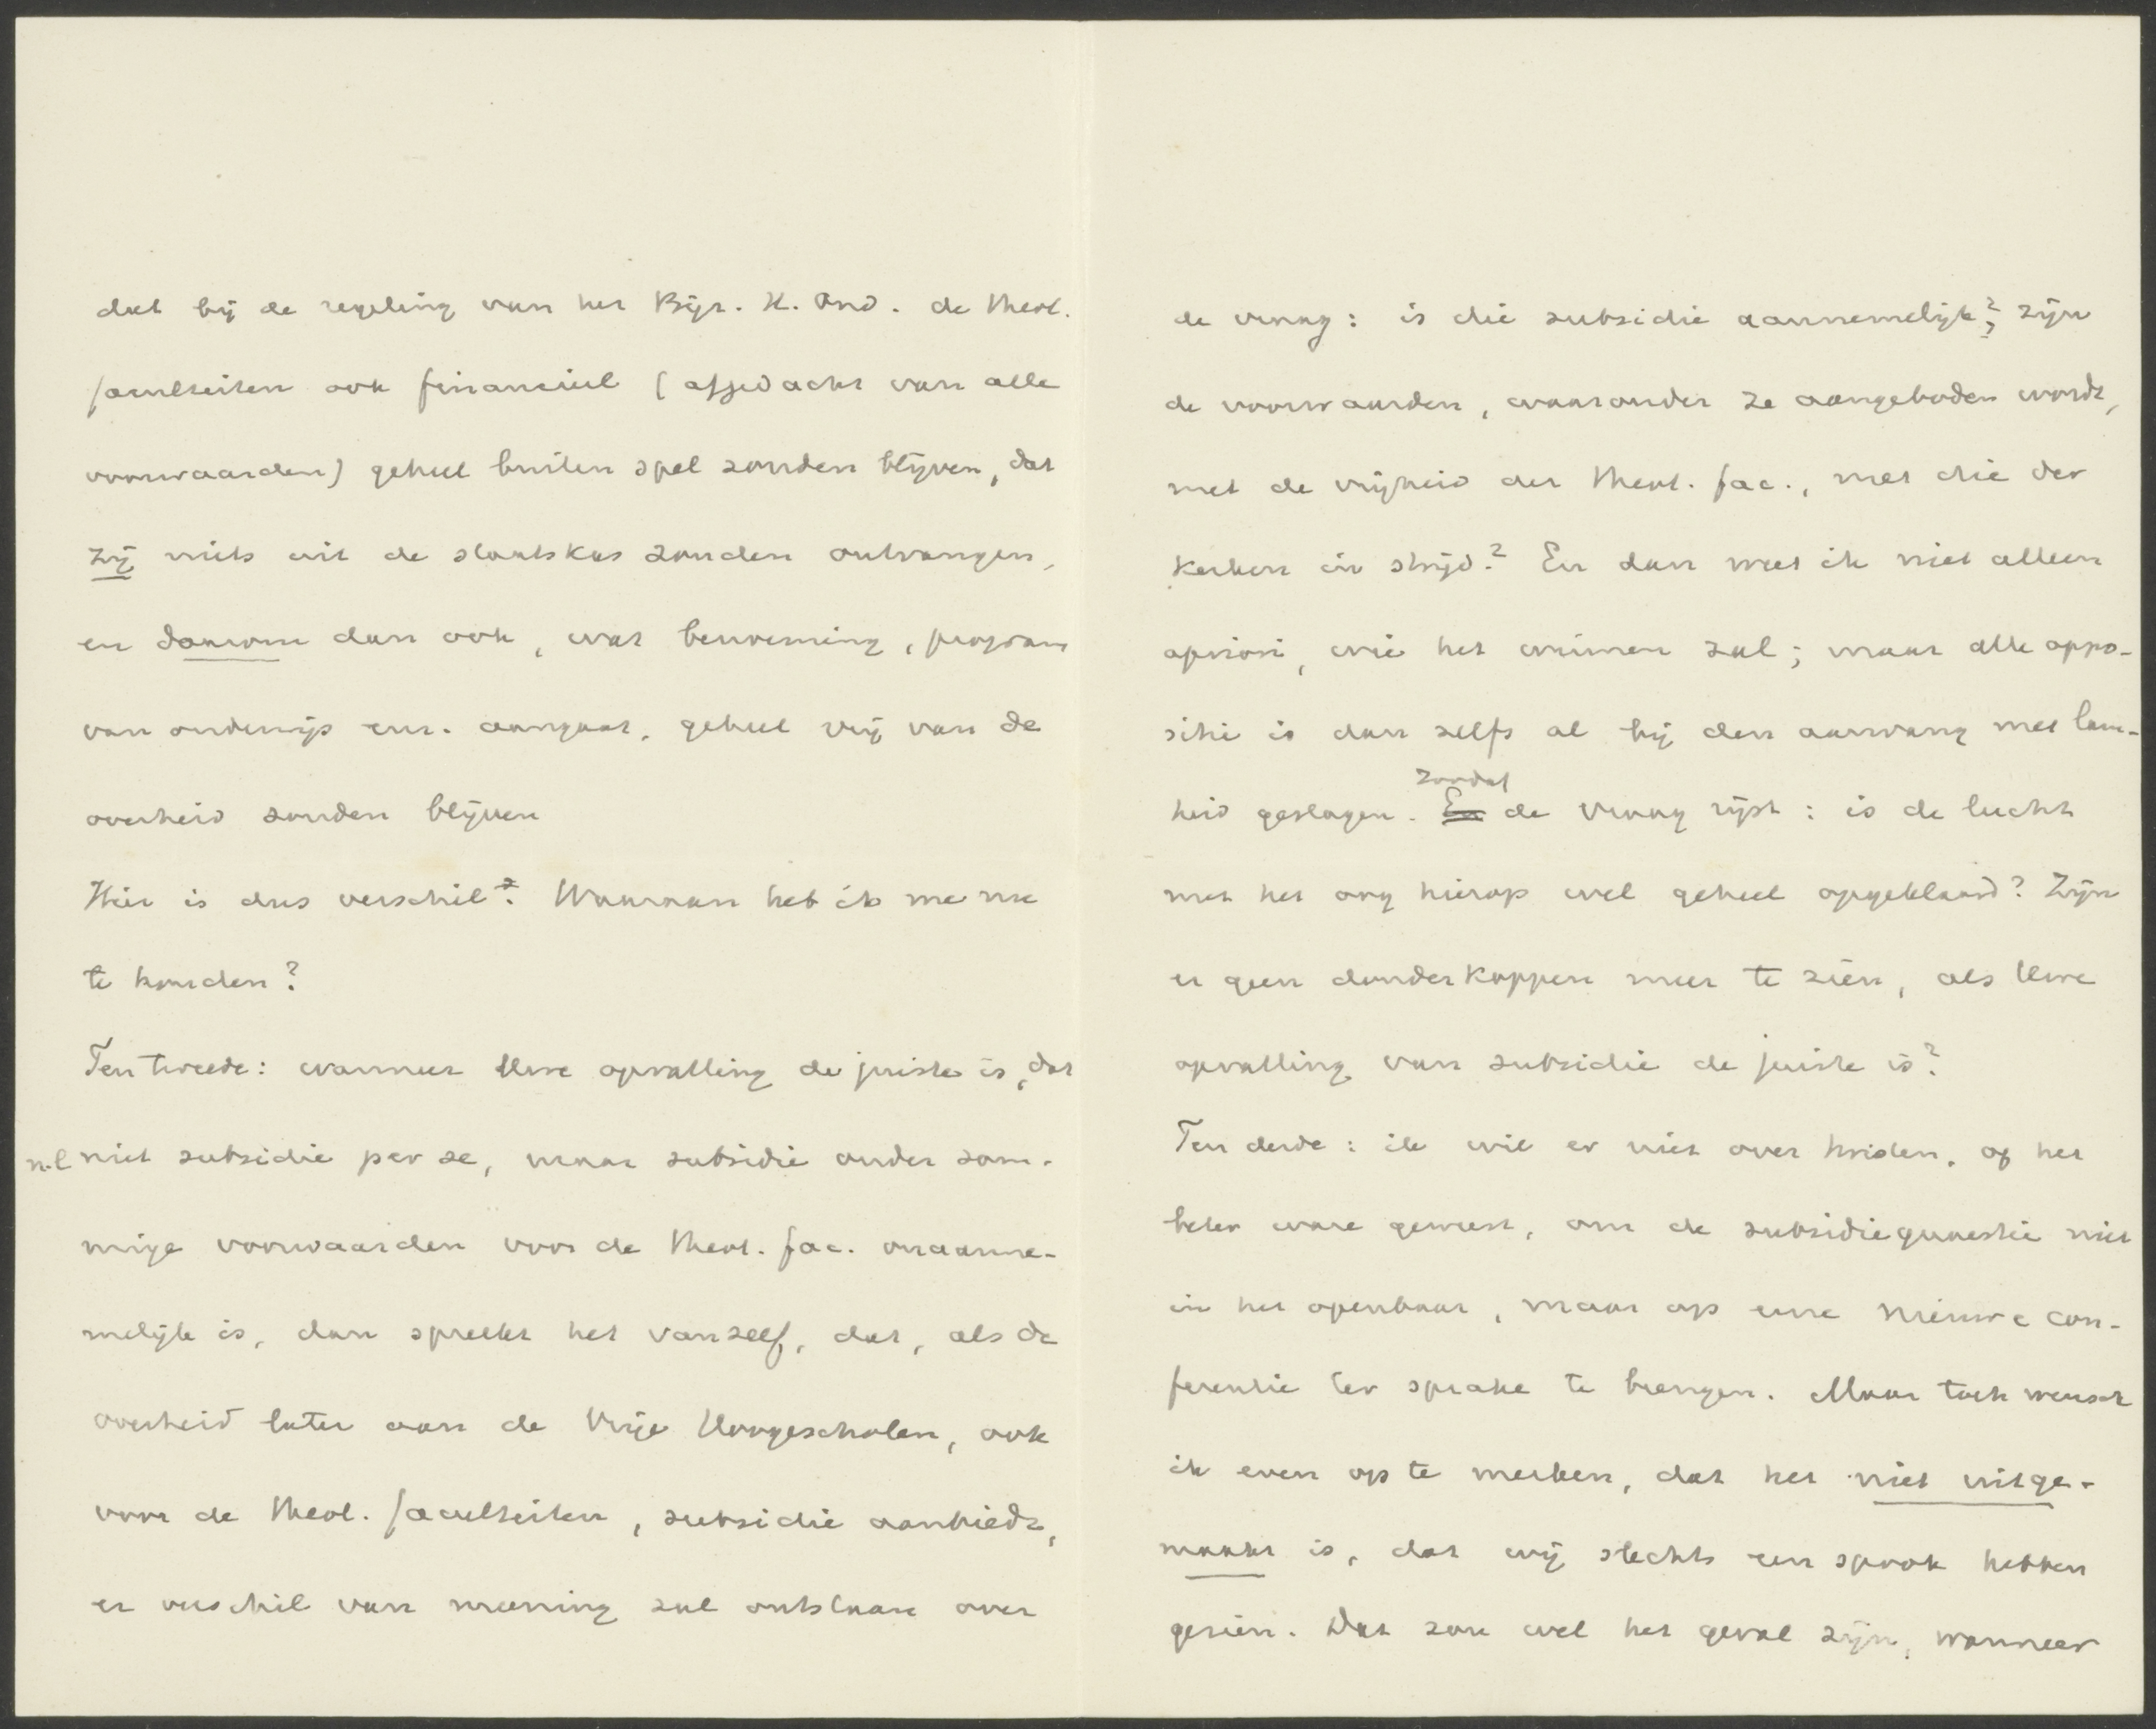 dat bij de regeling van het Bijz. H. Ond. de theol.
faculteiten ook financieel (afgedacht van alle
voorwaarden) geheel buiten spel zouden blijven, dat
zij niets uit de staatskas zouden ontvangen,
en daarom dan ook, wat benoeming, program
van onderwijs enz. aangaat, geheel vrij van de
overheid zouden blijven
Hier is dus verschil? Waaraan heb ik me nu
te houden?
Ten tweede: wanneer Uwe opvatting de juiste is, dat
n.l niet subsidie per se, maar subsidie onder som-
mige voorwaarden voor de theol. fac. onaanne-
melijk is, dan spreekt het vanzelf, dat, als de
overheid later aan de Vrije Hoogescholen, ook
voor de theol. faculteiten, subsidie aanbiedt,
er verschil van meening zal ontstaan over
de vraag: is die subsidie aannemelijk? zijn
de voorwaarden, waaronder ze aangeboden wordt,
met de vrijheid der theol. fac., met die der
Kerken in strijd? En dan weet ik niet alleen
apriori, wie het winnen zal; maar alle oppo-
sitie is dan zelfs al bij den aanvang met lam-
heid geslagen. En zoodat de vraag rijst: is de lucht
met het oog hierop wel geheel opgeklaard? Zijn
er geen donderkoppen meer te zien, als Uwe
opvatting van subsidie de juiste is?
Ten derde: ik wil er niet over twisten, of het
beter ware geweest, om de subsidiequaestie niet
in het openbaar, maar op eene nieuwe con-
ferentie ter sprake te brengen. Maar toch wensch
ik even op te merken, dat het niet uitge-
maakt is, dat wij slechts een spook hebben
gezien. Dat zou wel het geval zijn, wanneer